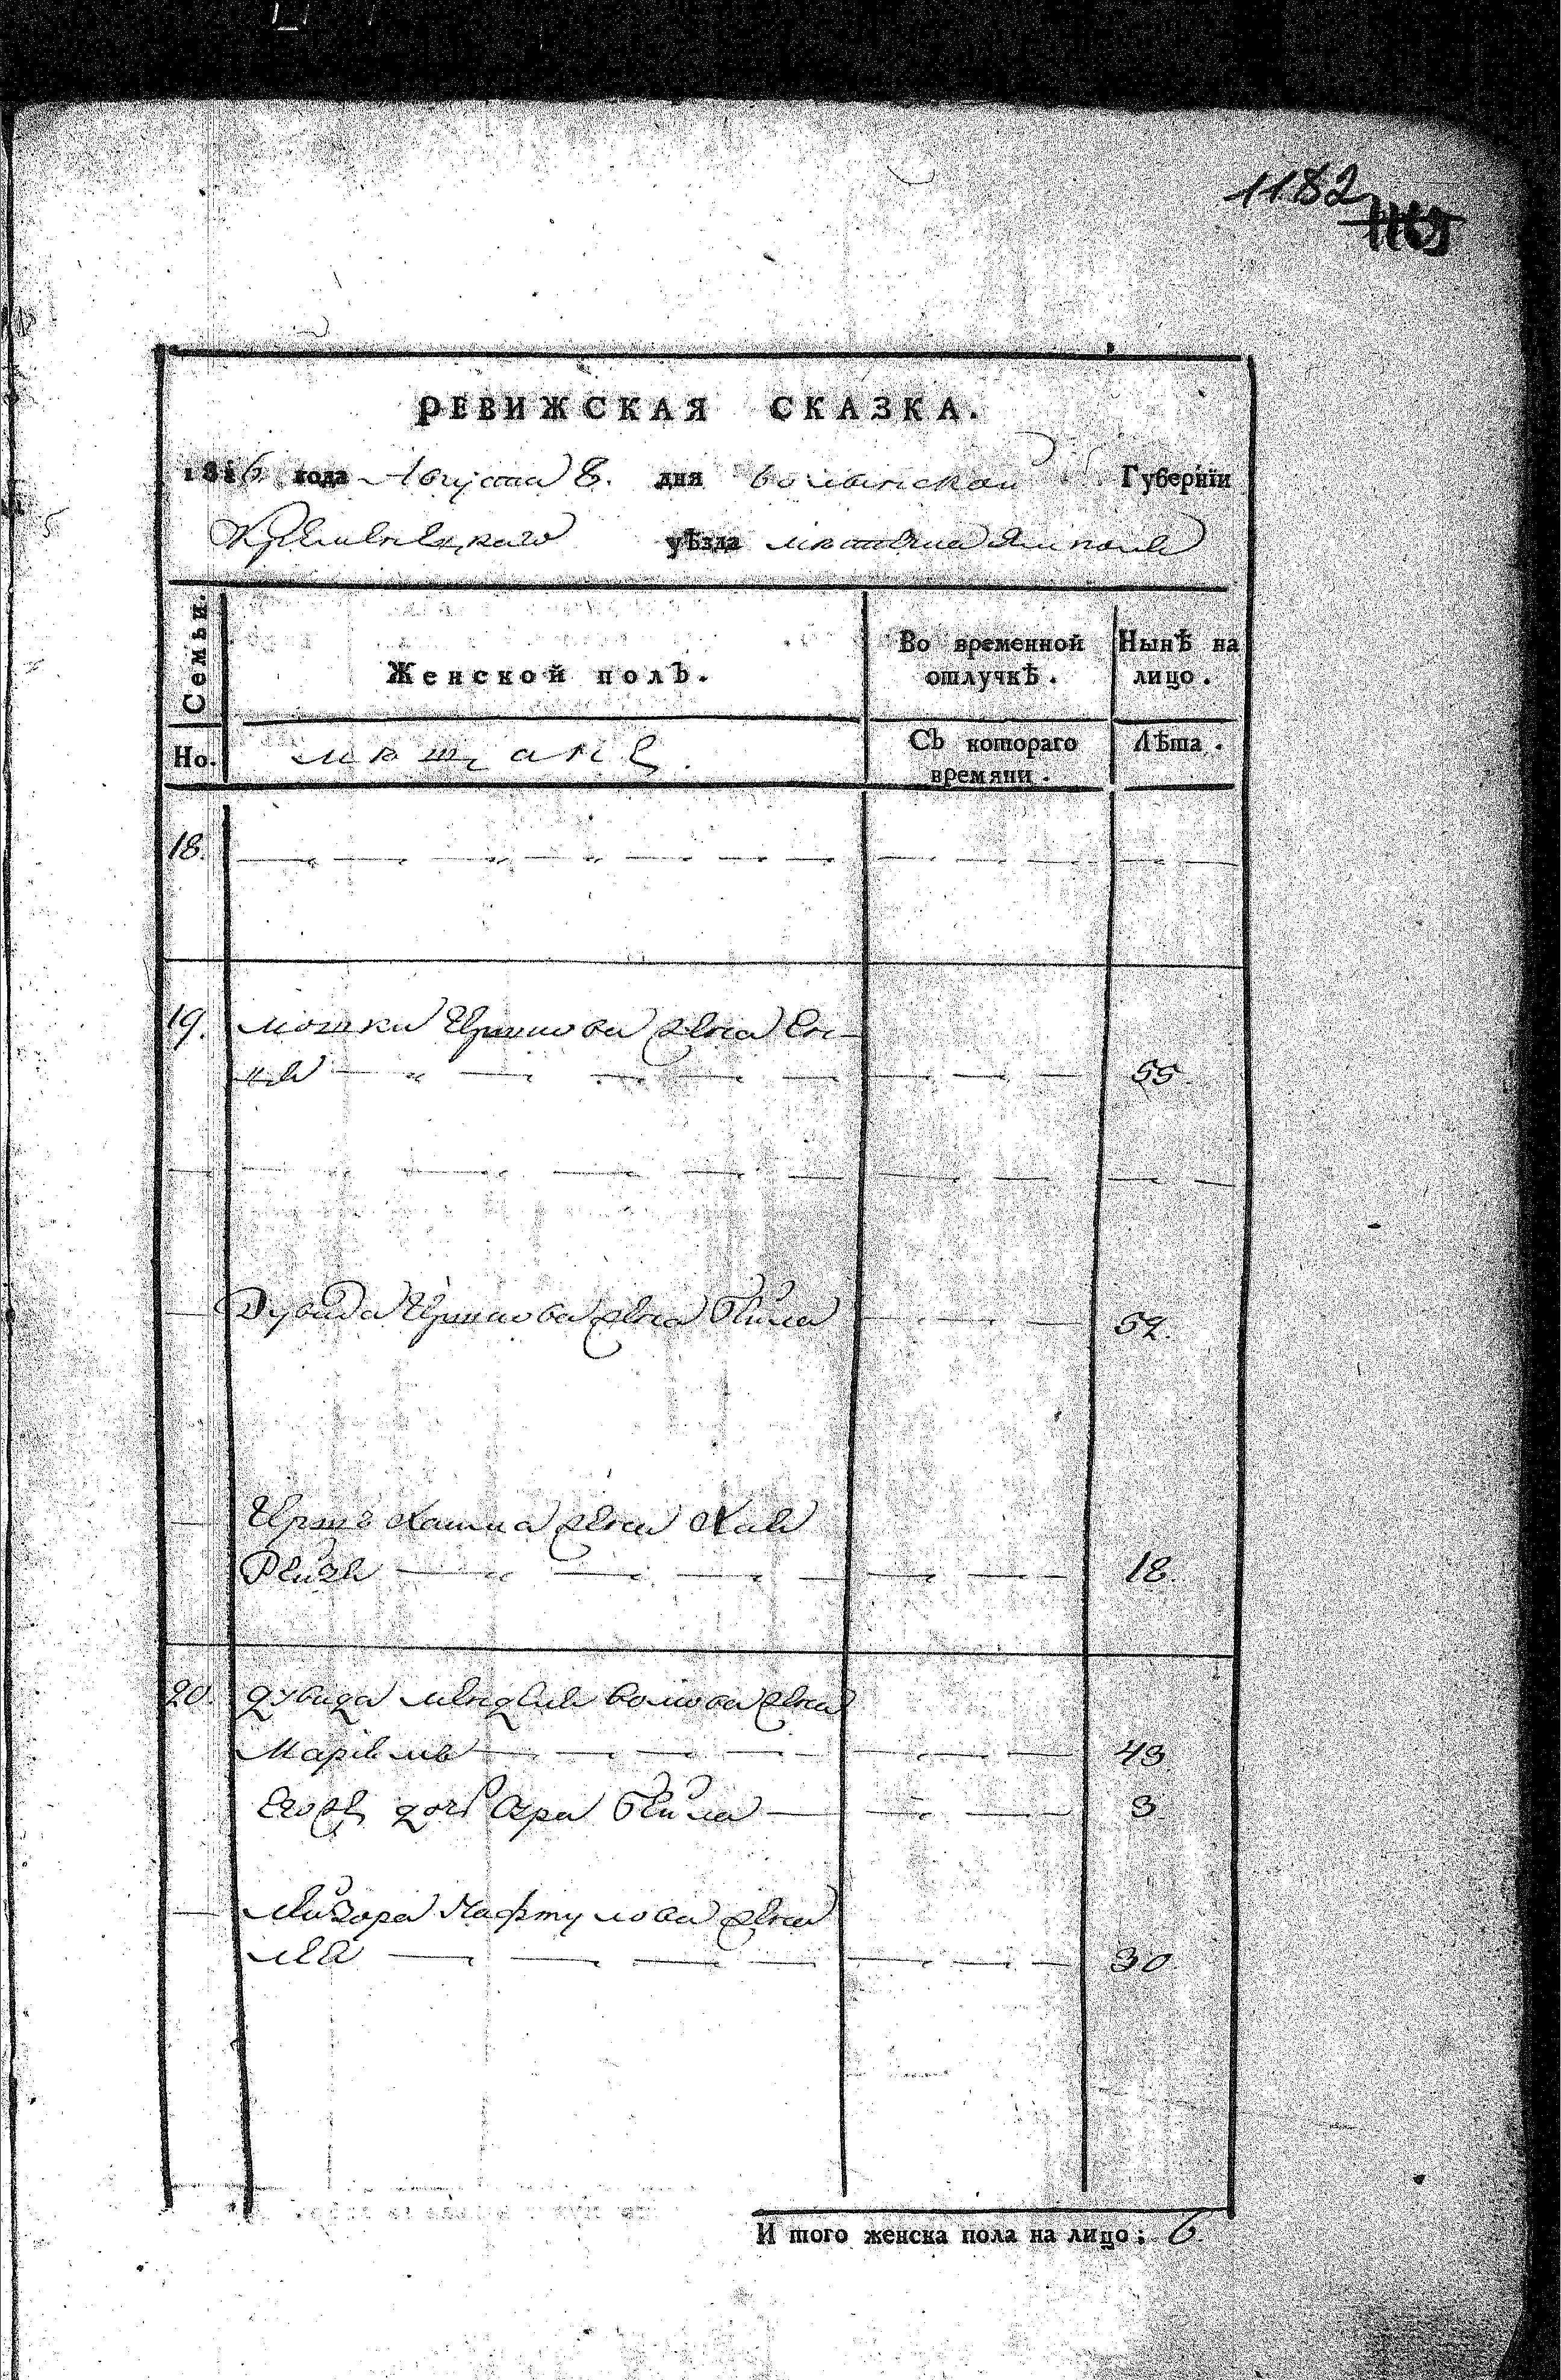 1182
РЕВИЖСКАЯ СКАЗКА.
1816 года Августа 8. дня волынской Губерніи
Кременецкаго уѣзда местечка Ямполя
Семьи.
Женской полъ.
Во временной отлучкѣ.
Нынѣ на лицо.
Но.
мещане.
Съ котораго времяни.
Лѣта.
18.
19. мошки Иршкова жена
55.
Дувида Иршкова жена Бейла 52.
Иршъ Хаима жена Хае
Рейзе 18.
20. дувида менделе волкова жена
43
Егожъ дочь Сура Бейла 3
Лейзора Нафтулова жена
30
И того женска пола на лицо: 6.